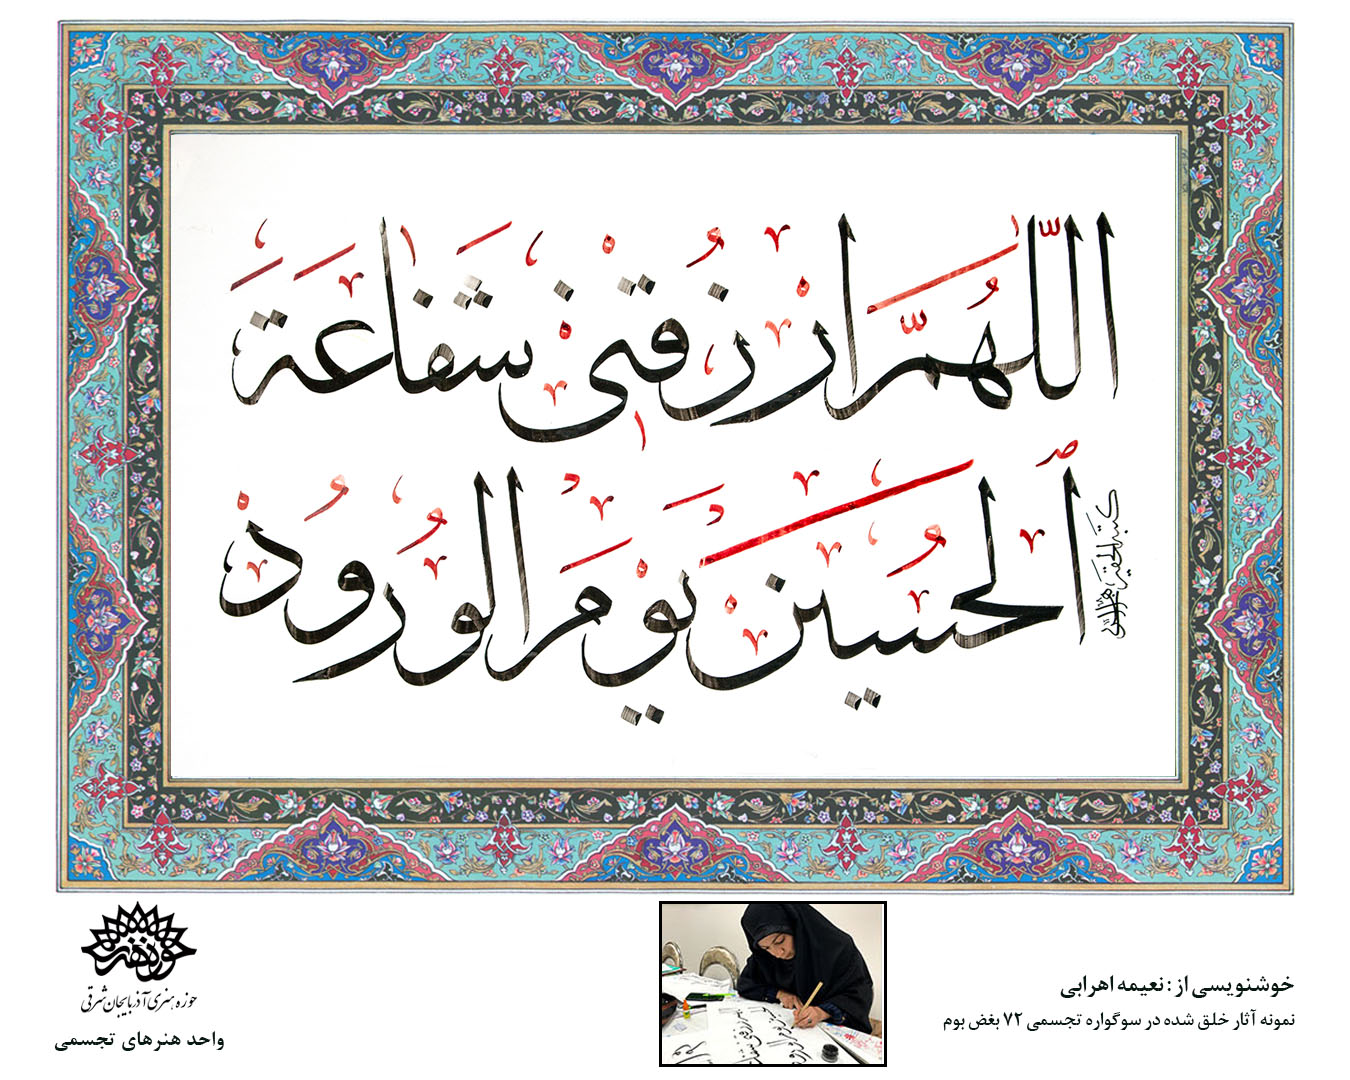 اللّٰهُمَّ ارْزُقْنی شَفاعَةَ
ٱلْحُسَیْنِ یَوْمَ الْوُرُودِ
خوشنویسی از : نعیمه اهرابی
نمونه آثار خلق شده در سوگواره تجسمی ۷۲ بغض بوم
حوزه هنری آذربایجان شرقی
واحد هنرهای تجسمی